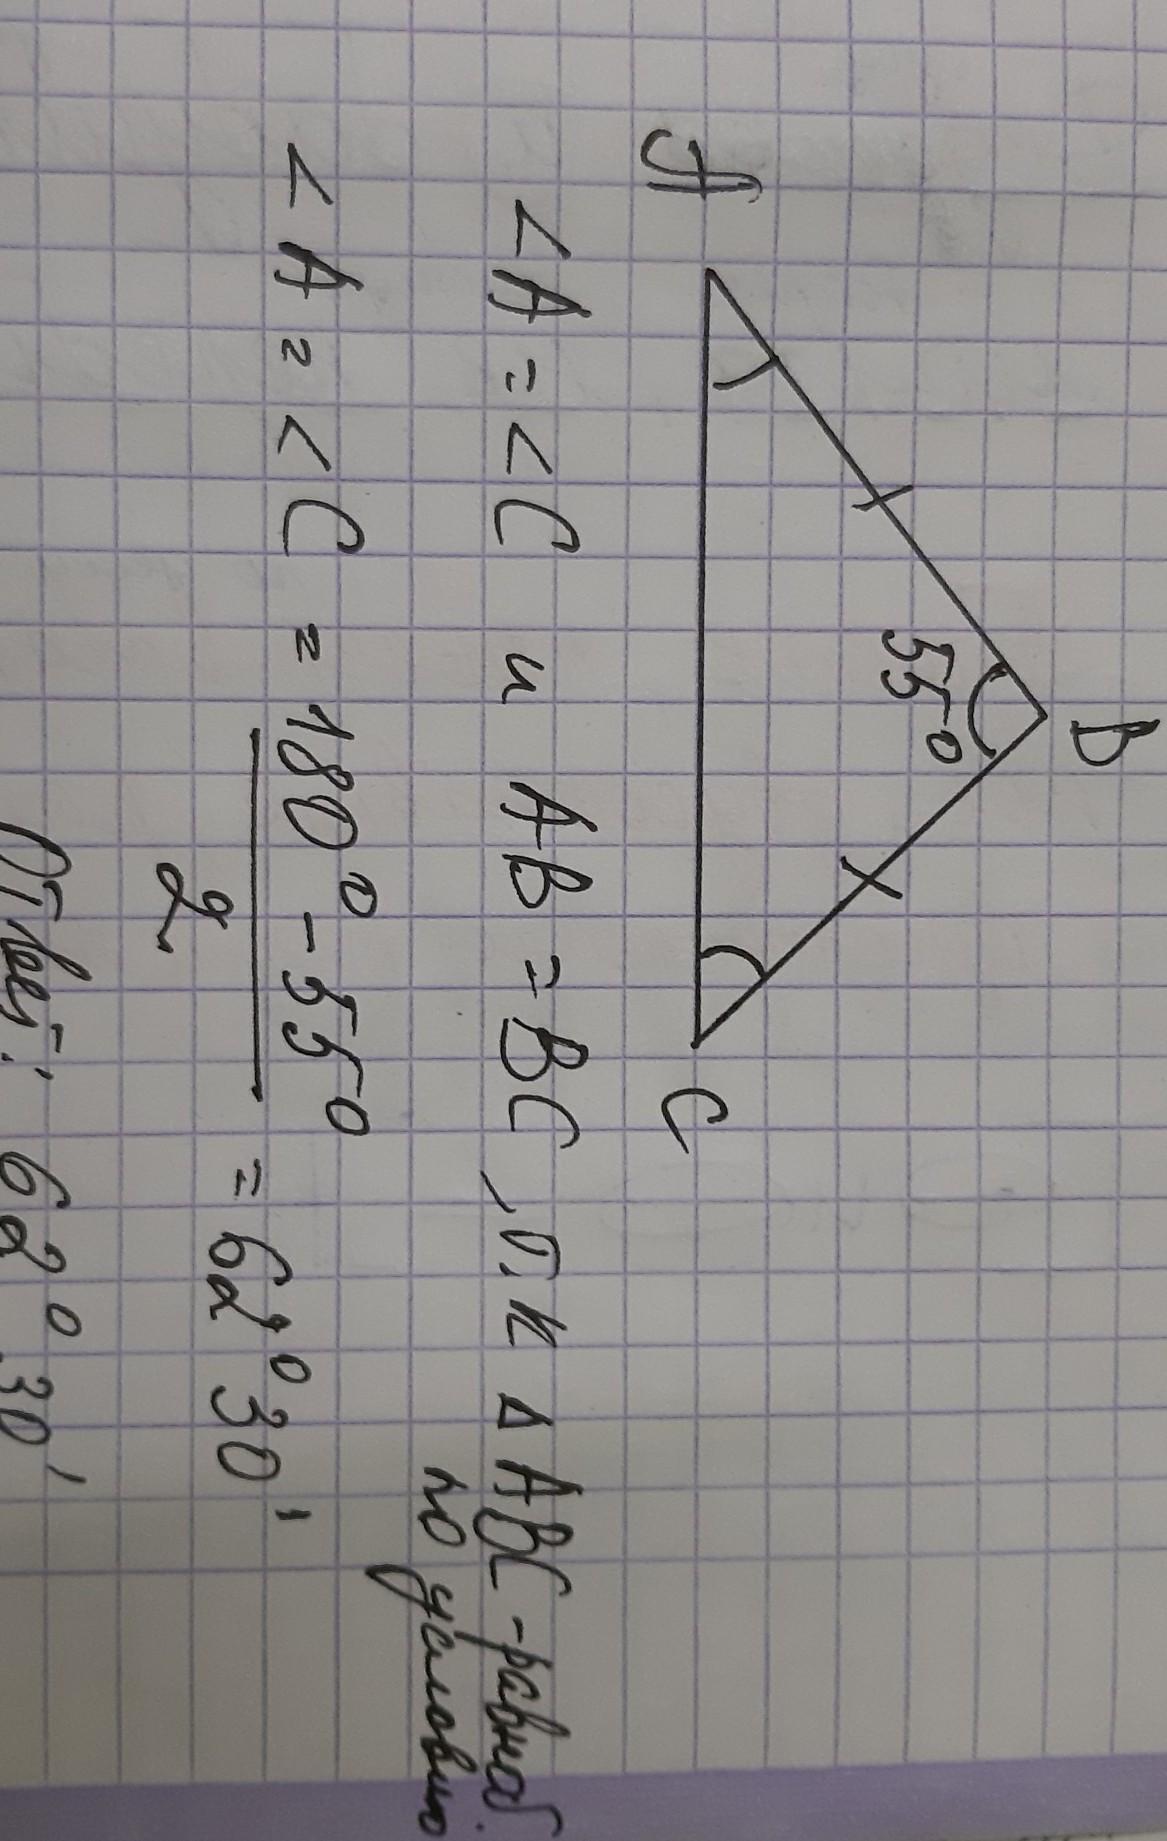 B
55°
A
C
<A = <C и AB = BC, т.к △ ABC - равноб.
по условию
<A = <C = 180° - 55° = 62°30'
2
Ответ: 62°30'